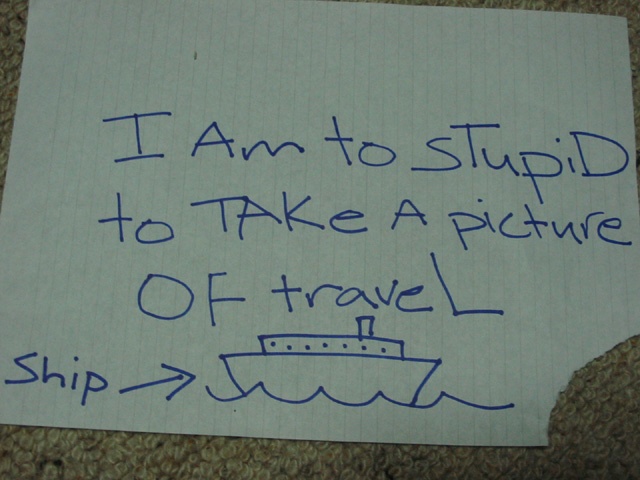 I Am to STupiD
to TAKe A picture
OF traveL
Ship